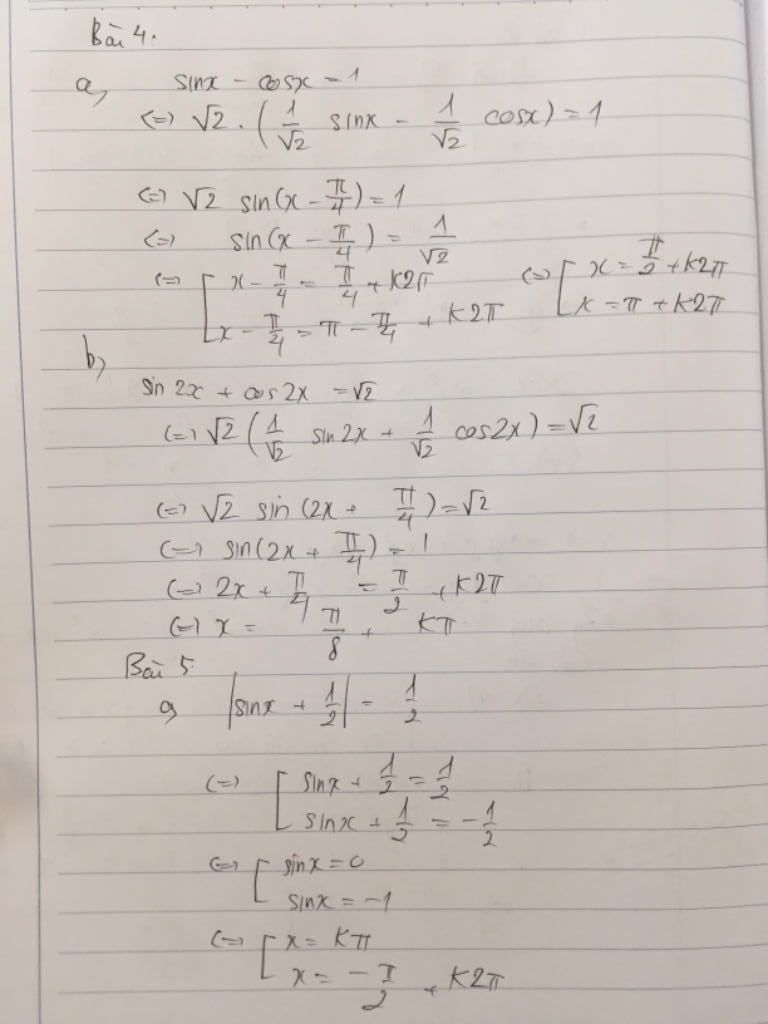 Bài 4.
a, sinx - cosx = 1
(=) √2 . ( 1/√2 sinx - 1/√2 cosx) = 1
(=) √2 sin(x - π/4) = 1
(=) sin(x - π/4) = 1/√2
(=) [ x - π/4 = π/4 + K2π (=) [ x = π/2 + K2π
x - π/4 = π - π/4 + K2π x = π + K2π
b,
sin 2x + cos 2x = √2
(=) √2 ( 1/√2 sin2x + 1/√2 cos2x) = √2
(=) √2 sin (2x + π/4) = √2
(=) sin(2x + π/4) = 1
(=) 2x + π/4 = π/2 + K2π
(=) x = π/8 + Kπ
Bài 5.
a, |sinx + 1/2| = 1/2
(=) [ sinx + 1/2 = 1/2
sinx + 1/2 = -1/2
(=) [ sinx = 0
sinx = -1
(=) [ x = Kπ
x = -π/2 + K2π